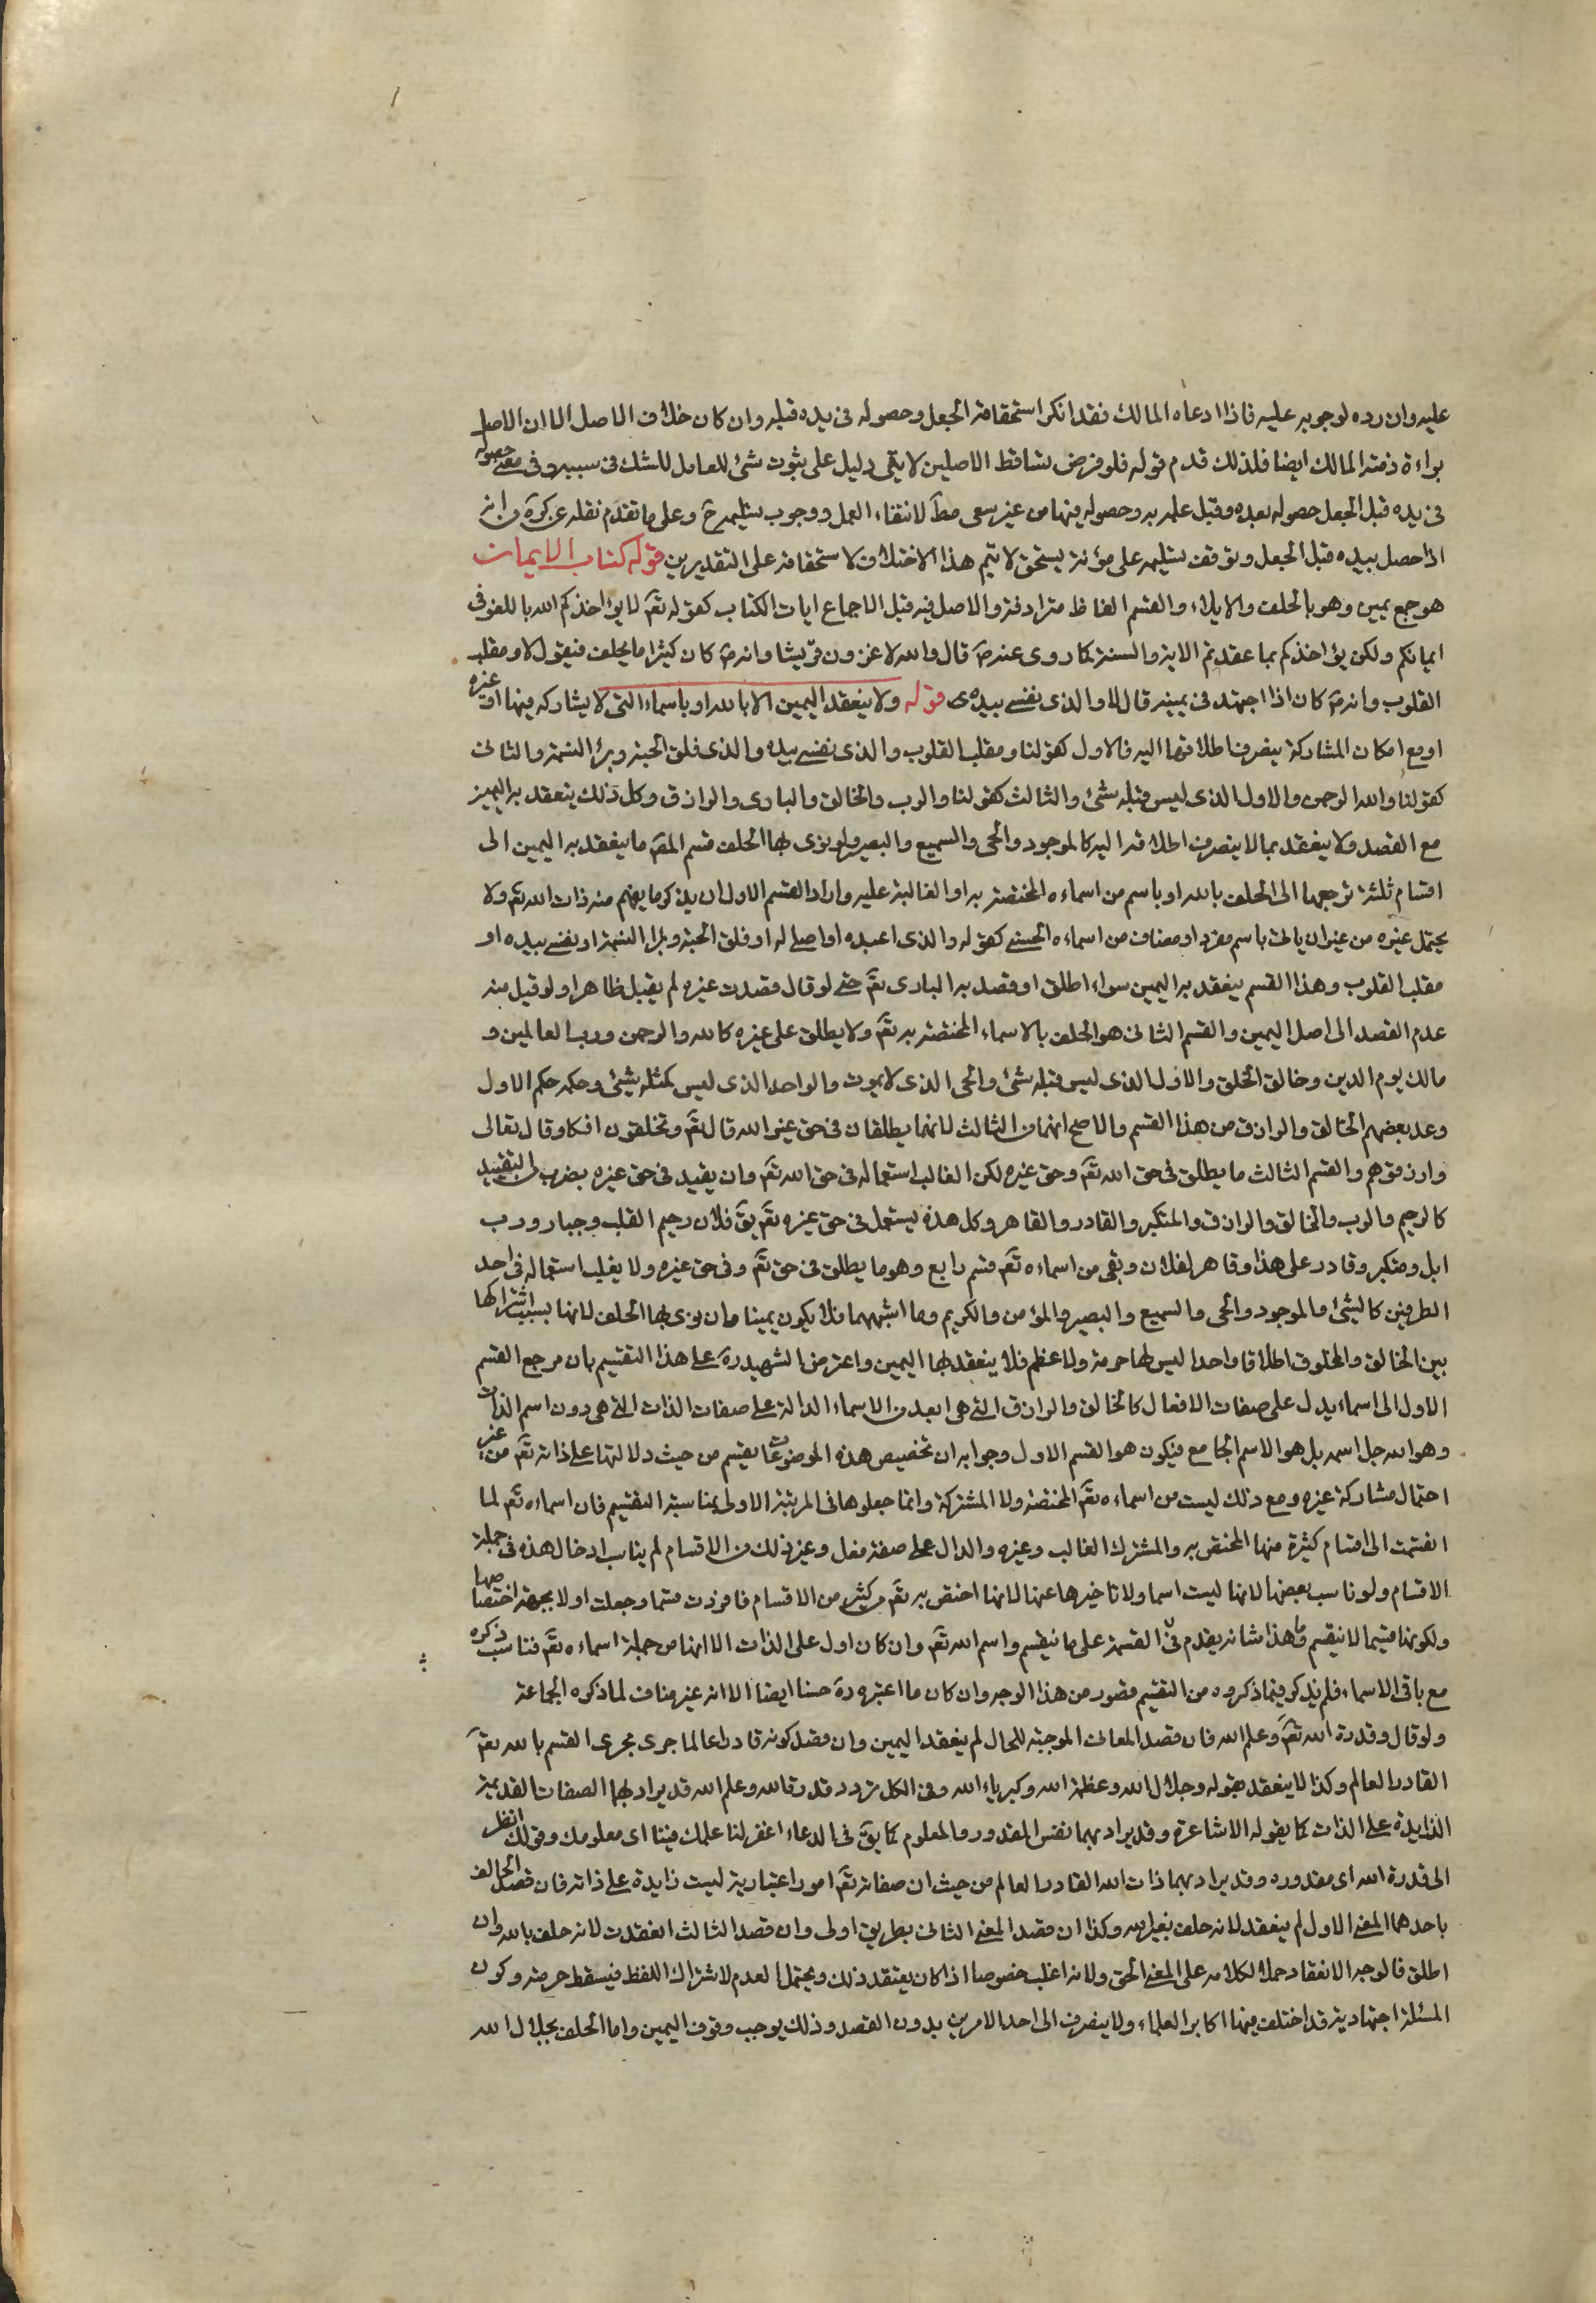 عليه وان رده لوجوبه عليه فاذا ادعاه المالك فقد انكر استحقاقه الجعل وحصوله فى يده قبله وان كان خلاف الاصل الا ان الاصل
براءة ذمة المالك ايضا فلذلك قدم قوله فلو فرض تساقط الاصلين لا يبقى دليل على ثبوت شئ للعامل للشك فى سببه وفى معنى حصوله
فى يده قبل الجعل حصوله بعده وقبل علمه به وحصوله فيها من غير سعى مطّ لانتفاء العمل ووجوب تسليمه حّ وعلى ما تقدم نقله عن كرة من انه
اذا حصل بيده قبل الجعل وتوقف تسليمه على مؤنة يستحق لا يتم هذا الاختلاف لاستحقاقه على التقديرين قوله كتاب الايمان
هو جمع يمين وهو بالحلف والايلاء والقسم الفاظ مترادفة والاصل فيه قبل الاجماع ايات الكتاب كقوله تعّم لا يؤاخذكم الله باللغو فى
ايمانكم ولكن يؤاخذكم بما عقدتم الاية والسنة كما روى عنه صّ قال والله لاغزون قريشا وانه صّ كان كثيرا ما يحلف فيقول لا ومقلب
القلوب وانه صّ كان اذا اجتهد فى يمينه قال لا والذى نفسى بيده قوله ولا ينعقد اليمين الا بالله او باسماء التى لا يشاركه فيها غيره
او مع امكان المشاركة ينصرف اطلاقها اليه فالاول كقولنا ومقلب القلوب والذى نفسى بيده والذى فلق الحبة وبرئ النسمة والثانى
كقولنا والله الرحمن والاول الذى ليس قبله شئ والثالث كقولنا والرب والخالق والبارى والرازق وكل ذلك ينعقد به اليمين
مع القصد ولا ينعقد بما لا ينصرف اطلاقه اليه كالموجود والحى والسميع والبصير ولو نوى بها الحلف قسم المقّ ما ينعقد به اليمين الى
اقسام ثلثة ترجعها الى الحلف بالله او باسم من اسماءه المختصة به او الغالبة عليه واراد القسم الاول ان يذكر ما يفهم منه ذات الله تعّم ولا
يحتمل غيره من غير ان ياتى باسم مفرد او مضاف من اسماءه الحسنى كقوله والذى اعبده او اصلى له او فلق الحبة وبرا النسمة او نفسى بيده او
مقلب القلوب وهذا القسم ينعقد به اليمين سواء اطلق او قصد به البارى تعّم حتى لو قال قصدت غيره لم يقبل ظاهرا ولو قيل منه
عدم القصد الى اصل اليمين والقسم الثانى هو الحلف بالاسماء المختصة به تعّم ولا يطلق على غيره كالله والرحمن ورب العالمين و
مالك يوم الدين وخالق الخلق والاول الذى ليس قبله شئ والحى الذى لا يموت والواحد الذى ليس كمثله شئ وحكمه حكم الاول
وعد بعضهم الخالق والرازق من هذا القسم والاصح انهما من الثالث لانهما يطلقان فى حق غير الله قال تعّم وتخلقون افكا وقال تعالى
وارزقوهم والقسم الثالث ما يطلق فى حق الله تعّم وحق غيره لكن الغالب استعماله فى حق الله تعّم وان يقيد فى حق غيره بضرب من التقييد
كالرحيم والرب والخالق والرازق والمتكبر والقادر والقاهر وكل هذه يستعمل فى حق غيره تعّم يقّ فلان رحيم القلب وجبار ورب
ابل ومتكبر وقادر على هذا وقاهر لفلان وبقى من اسماءه تعّم قسم رابع وهو ما يطلق فى حق تعّم وفى حق غيره ولا يغلب استعماله فى احد
الطرفين كالشئ والموجود والحى والسميع والبصير والمؤمن والكريم وما اشبهها فلا يكون يمينا وان نوى بها الحلف لانها بسبب اشتراكها
بين الخالق والمخلوق اطلاقا واحدا ليس لها حرمة ولا عظم فلا ينعقد بها اليمين واعترض الشهيد رة على هذا التقسيم بان مرجع القسم
الاول الى اسماء يدل على صفات الافعال كالخالق والرازق التى هى ابعد من الاسماء الدالة على صفات الذات التى هى دون اسم الذات
وهو الله جل اسمه بل هو الاسم الجامع فيكون هو القسم الاول وجوابه ان تخصيص هذه الموضوعات بقسم من حيث دلالتها على ذاته تعّم من غير
احتمال مشاركة غيره ومع ذلك ليست من اسماءه تعّم المختصة ولا المشتركة وانما جعلوها فى المرتبة الاولى بمناسبة التقسيم فان اسماءه تعّم لما
انقسمت الى اقسام كثيرة منها المختص به والمشترك الغالب وغيره والدال على صفة فعل وغير ذلك من الاقسام لم يناسب ادخال هذه فى جملة
الاقسام ولو ناسب بعضها لانها ليست اسما ولا تاخيرها عنها لانها اختص به تعّم من كثير من الاقسام فافردت قسما وجعلت اولا بجهة اختصاصها
ولكونها قسيما لا ينقسم وما هذا شانه يقدم فى القسمة على ما ينقسم واسم الله تعّم وان كان اول على الذات الا انها من جملة اسماءه تعّم فناسب ذكره
مع باقى الاسماء فلم يذكر فيما ذكروه من التقسيم قصور من هذا الوجه وان كان ما اعتبره رة حسنا ايضا الا انه غير مناف لما ذكره الجماعة
ولو قال وقدرة الله تعّم وعلم الله فان قصد المعانى الموجبة للحال لم ينعقد اليمين وان قصد كونه قادرا عالما جرى مجرى القسم بالله تعّم
القادر العالم وكذا لا ينعقد بقوله وجلال الله وعظمة الله وكبرياء الله وفى الكل تردد قدرة الله وعلم الله قد يراد بهما الصفات القديمة
الزايدة على الذات كما يقوله الاشاعرة وقد يراد بهما نفس المقدور والمعلوم كما يقّ فى الدعاء اغفر لنا علمك فينا اى معلومك وقولك انظر
الى قدرة الله اى مقدوره وقد يراد بهما ذات الله القادر العالم من حيث ان صفاته تعّم امور اعتبارية ليست زايدة على ذاته فان قصد الحالف
باحدهما المعنى الاول لم ينعقد لانه حلف بغير الله وكذا ان قصد المعنى الثانى بطريق اولى وان قصد الثالث انعقدت لانه حلف بالله وان
اطلق فالوجه الانعقاد حملا لكلامه على المعنى الحق ولانه اغلب خصوصا اذا كان يعتقد ذلك ويحتمل العدم لاشتراك اللفظ فيسقط حرمته وكون
المسئلة اجتهادية قد اختلف فيها اكابر العلماء ولا ينصرف الى احد الامرين بدون القصد وذلك يوجب وقوف اليمين واما الحلف بجلال الله